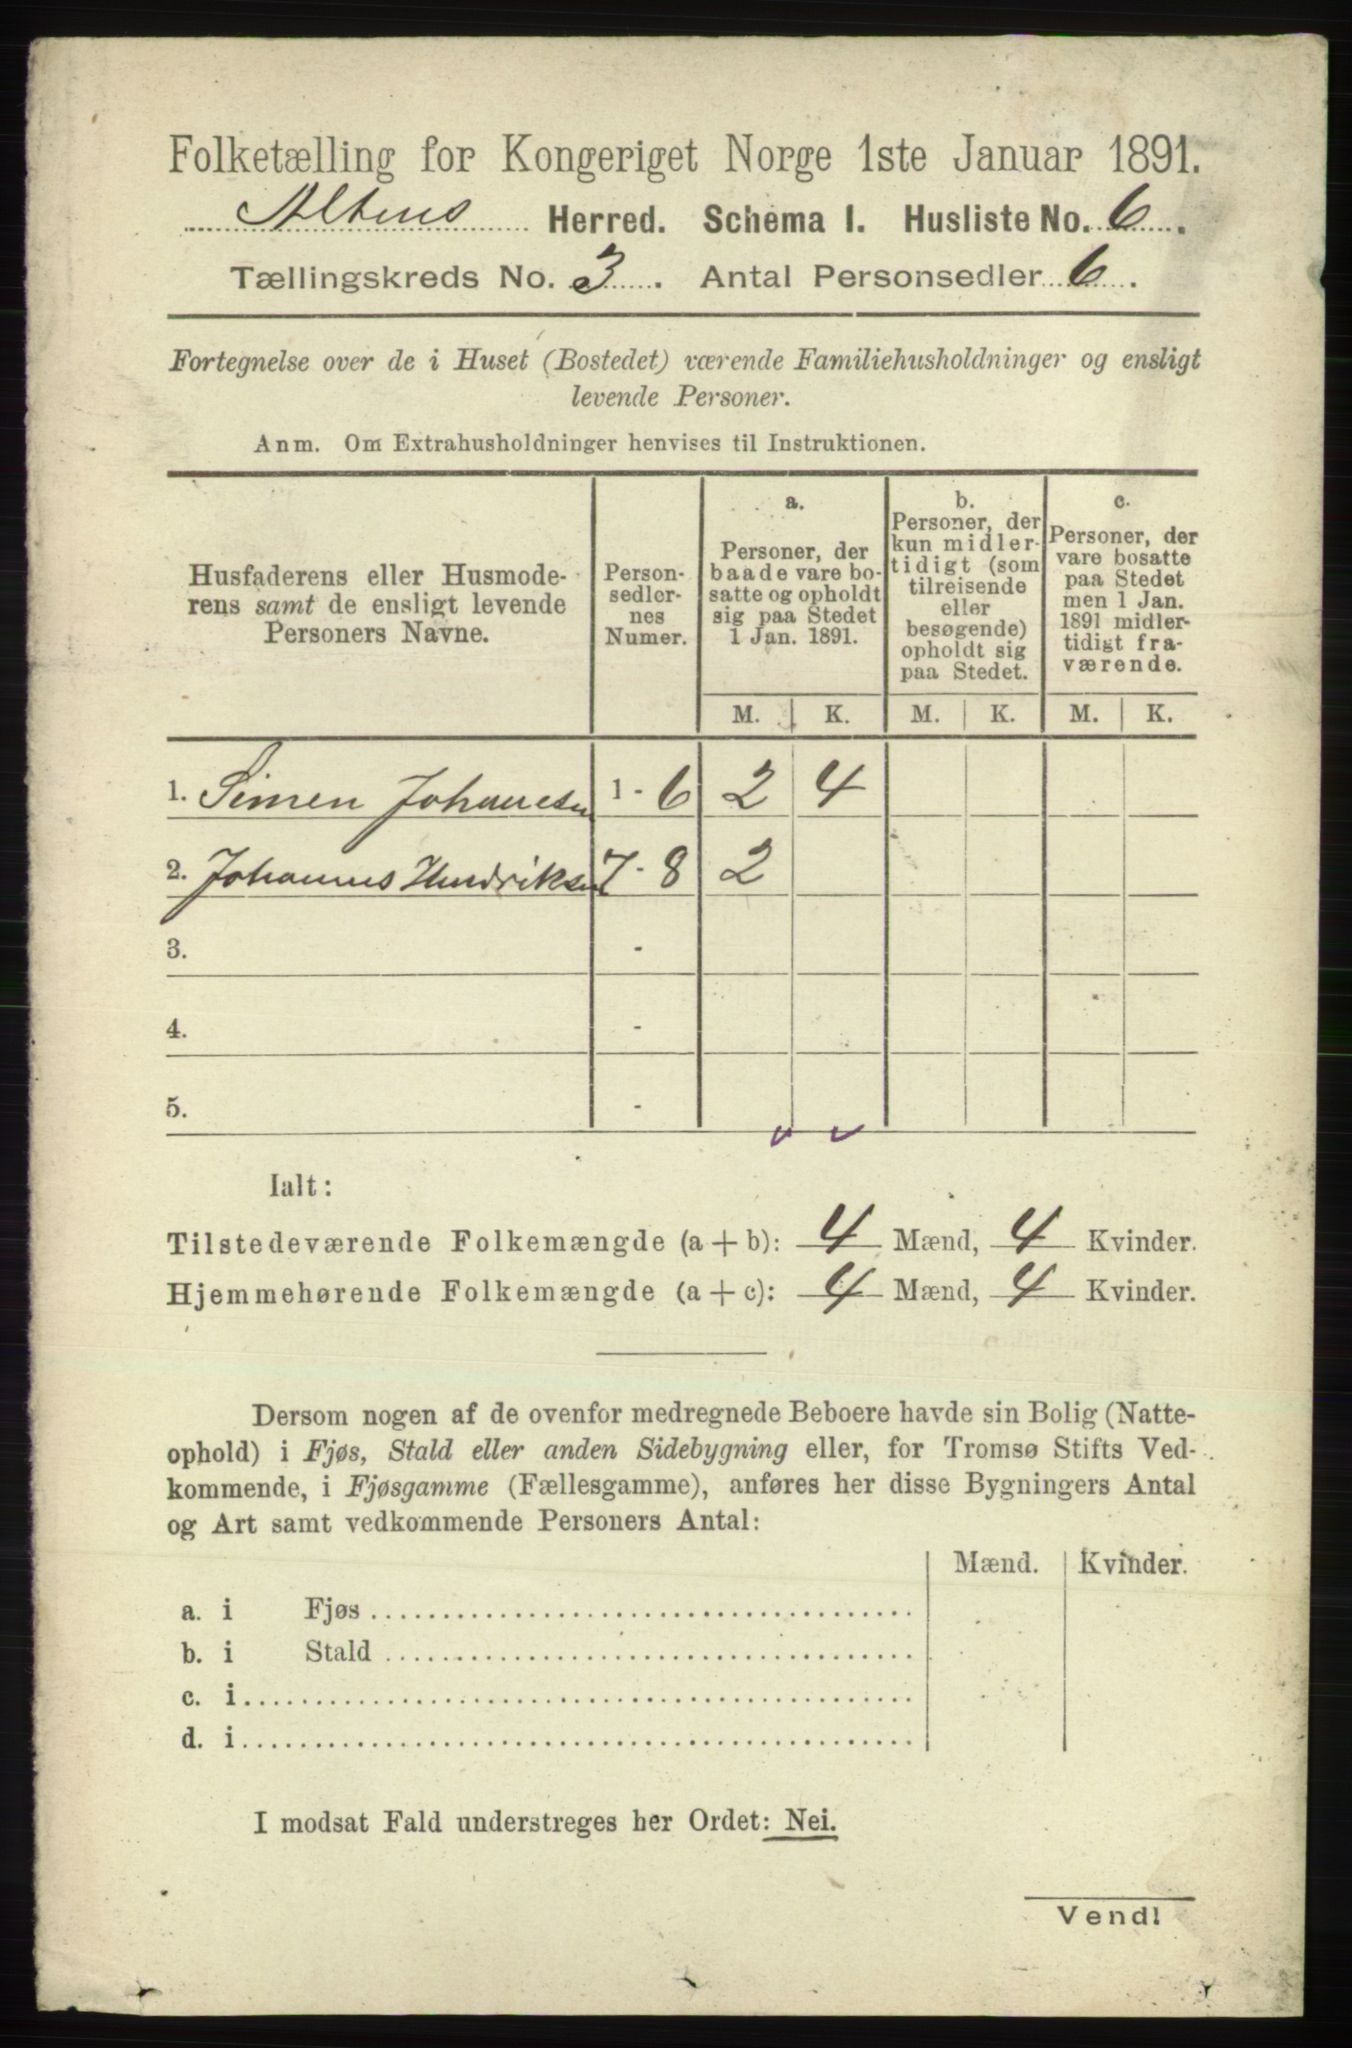 Folketælling for Kongeriget Norge 1ste Januar 1891.
Altens Herred. Schema I. Husliste No. 6.
Tællingskreds No. 3. Antal Personsedler 6.
Fortegnelse over de i Huset (Bostedet) værende Familiehusholdninger og ensligt
levende Personer.
Anm. Om Extrahusholdninger henvises til Instruktionen.
Husfaderens eller Husmode-
rens samt de ensligt levende
Personers Navne.
Person-
sedler-
nes
Numer.
a.
Personer, der
baade vare bo-
satte og opholdt
sig paa Stedet
1 Jan. 1891.
b.
Personer, der
kun midler-
tidigt (som
tilreisende
eller
besøgende)
opholdt sig
paa Stedet.
c.
Personer, der
vare bosatte
paa Stedet
men 1 Jan.
1891 midler-
tidigt fra-
værende.
M. K. M. K. M. K.
1. Simen Johannesen 1 - 6 2 4
2. Johannes Hendriksen 7 - 8 2
3. -
4. -
5. -
Ialt:
Tilstedeværende Folkemængde (a + b): 4 Mænd, 4 Kvinder.
Hjemmehørende Folkemængde (a + c): 4 Mænd, 4 Kvinder.
Dersom nogen af de ovenfor medregnede Beboere havde sin Bolig (Natte-
ophold) i Fjøs, Stald eller anden Sidebygning eller, for Tromsø Stifts Ved-
kommende, i Fjøsgamme (Fællesgamme), anføres her disse Bygningers Antal
og Art samt vedkommende Personers Antal:
Mænd. Kvinder.
a. i Fjøs
b. i Stald
c. i
d. i
I modsat Fald understreges her Ordet: Nei.
Vend!